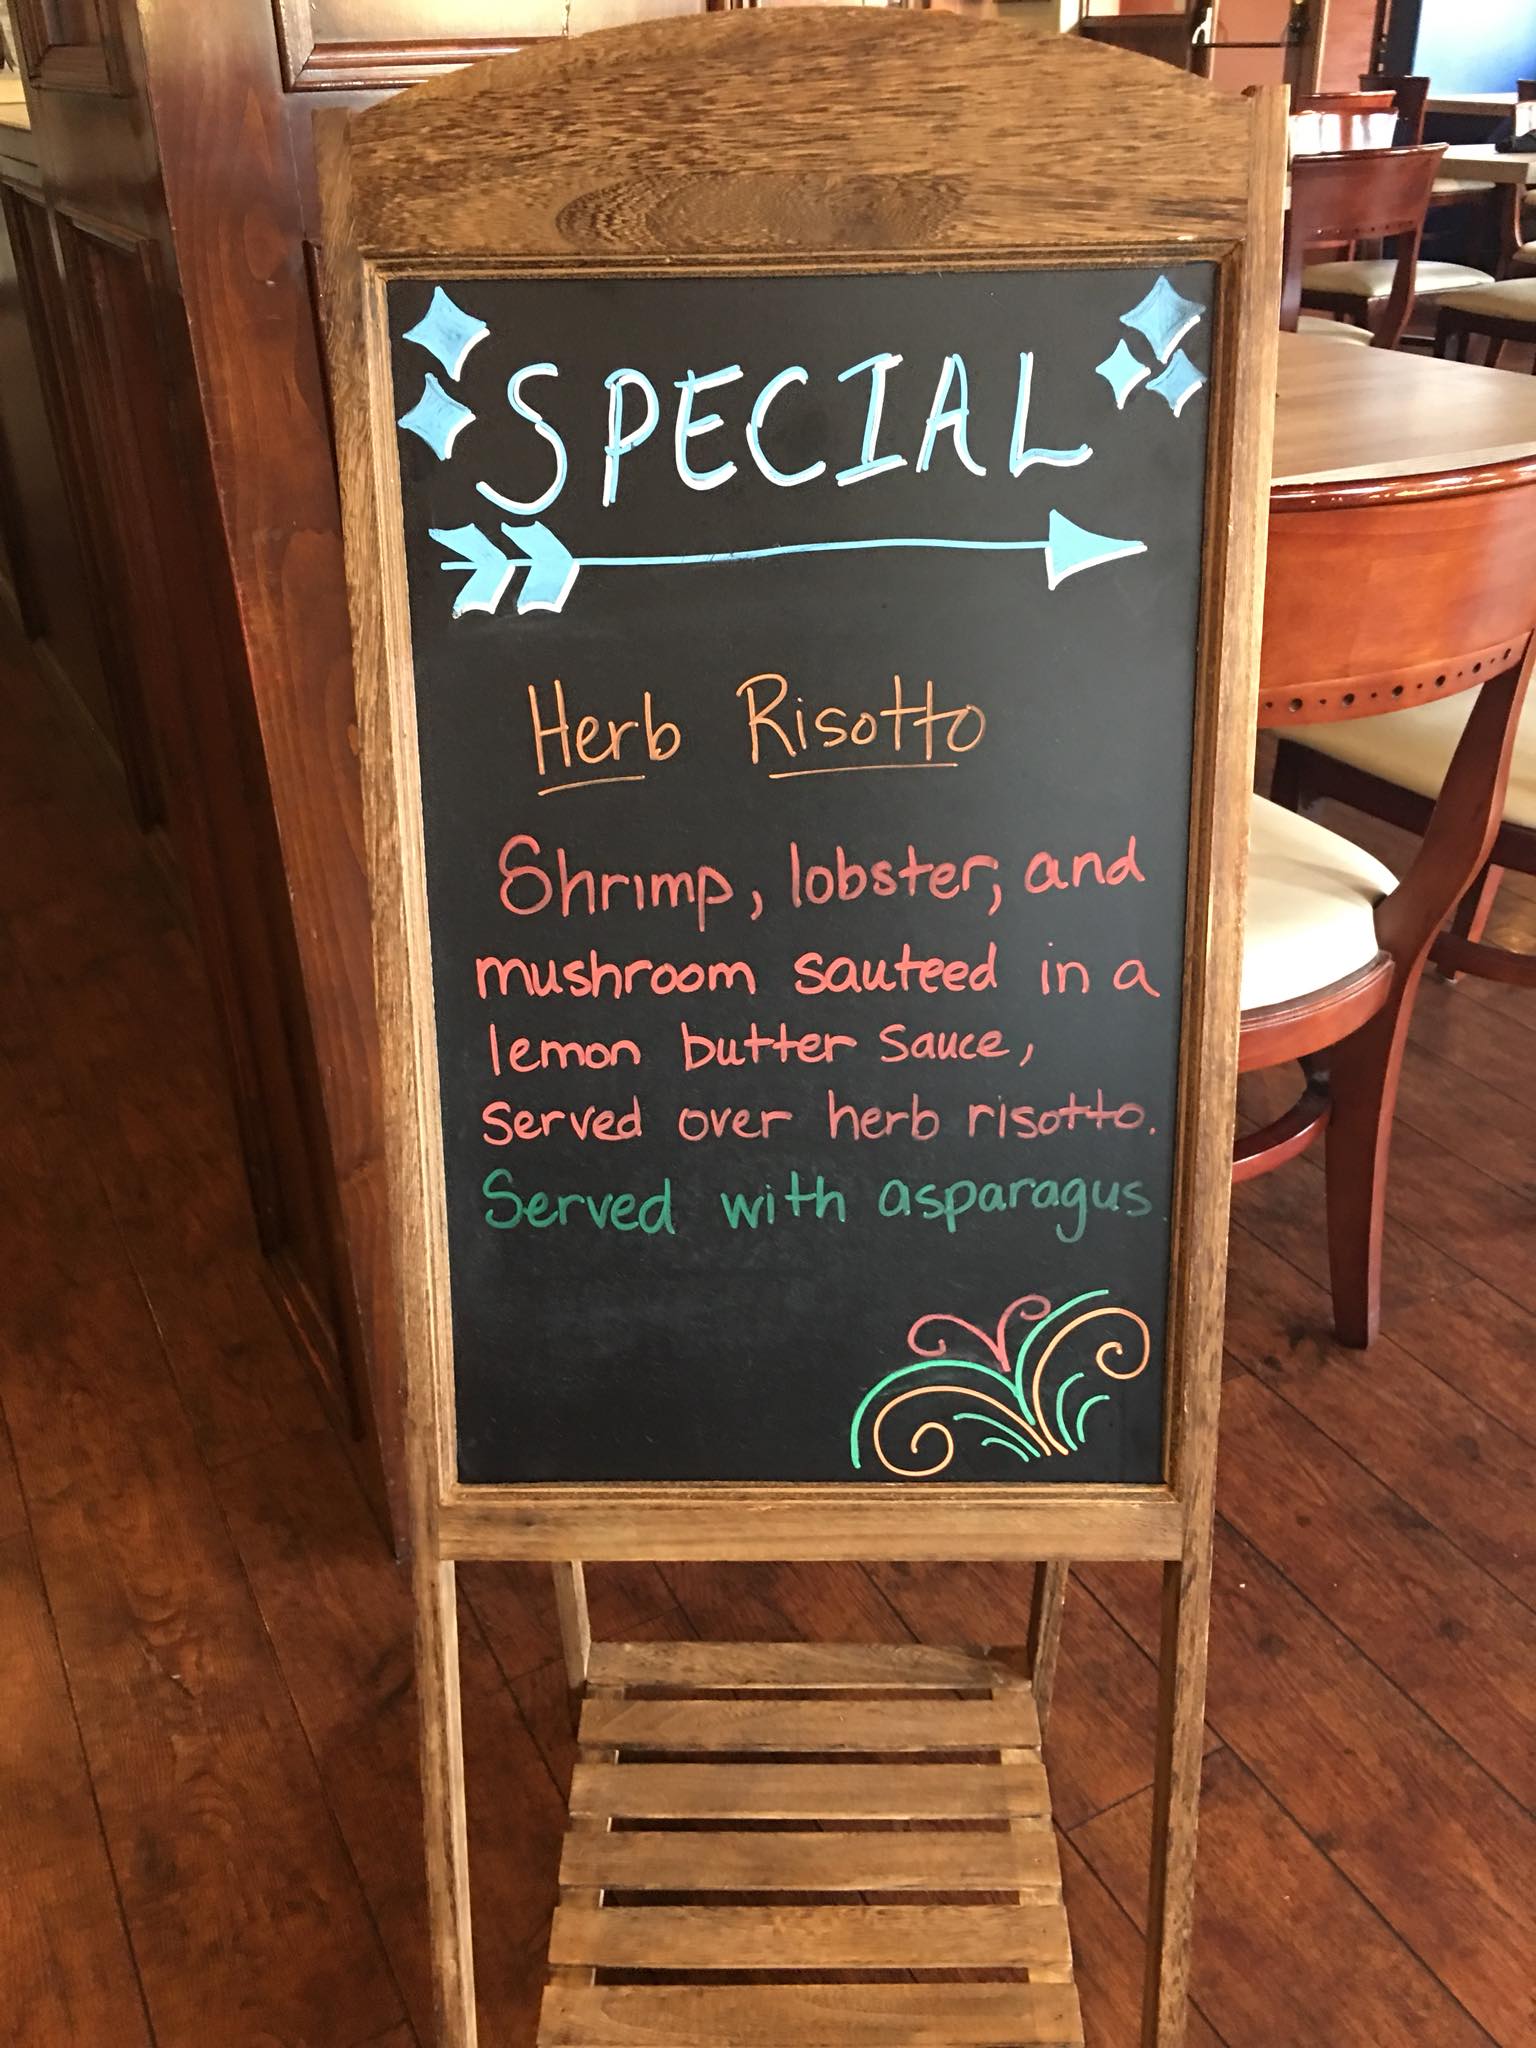 SPECIAL
Herb Risotto
Shrimp, lobster, and
mushroom sauteed in a
lemon butter sauce,
served over herb risotto.
Served with asparagus